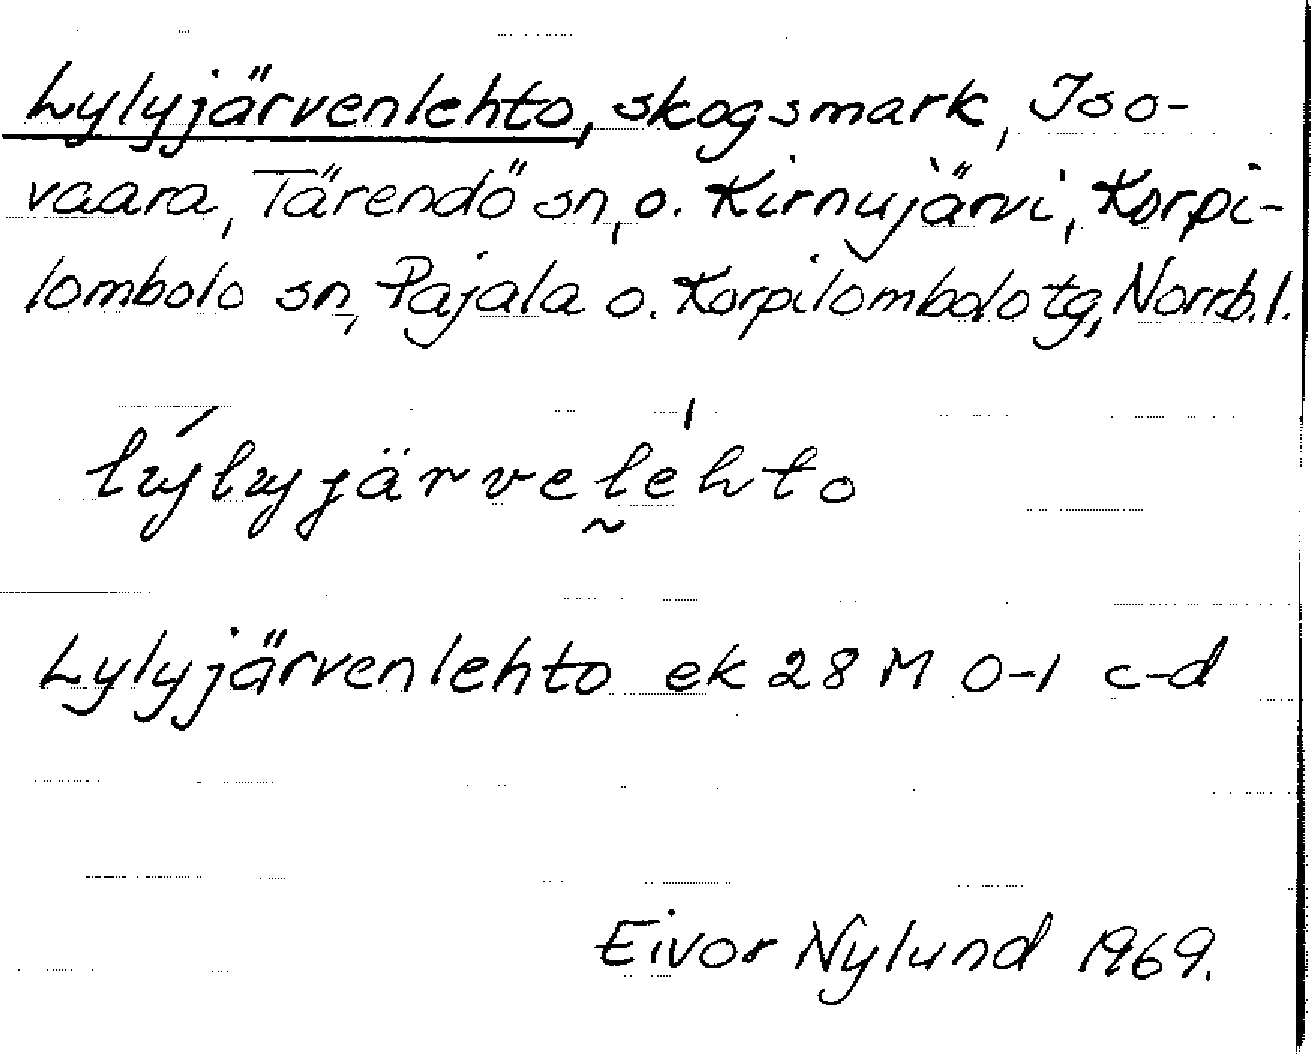 Lylyjärvenlehto, skogsmark, Iso-
vaara, Tärendö sn, o. Kirnujärvi, Korpi-
lombolo sn, Pajala o. Korpilombolo tg, Norrb. l.
lýlyjärvel̰e̍hto
Lylyjärvenlehto ek 28 M 0-1 c-d
Eivor Nylund 1969.